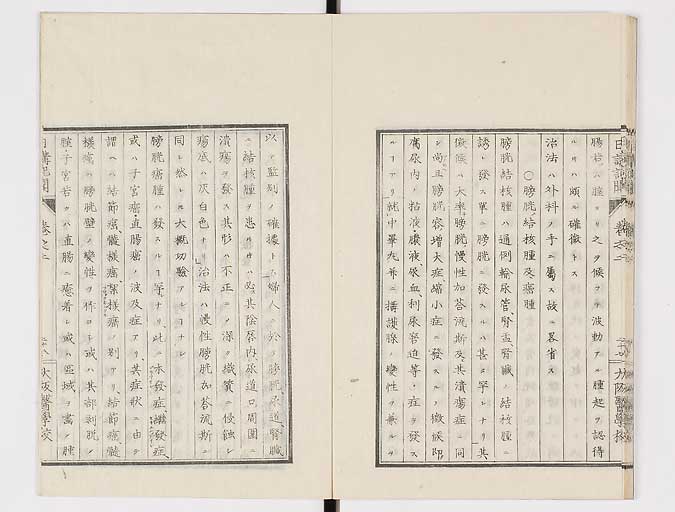 腸若クハ膣ヨリ之ヲ候フテ波動アル腫起ヲ認得
ルハ頗ル確徴トス
治法ハ外科ノ手ニ屬ス故ニ畧省ス
○膀胱結核腫及癌腫
膀胱結核腫ハ通例輸尿管、腎盂、腎臟ノ結核腫ニ
誘レ發ス單ニ膀胱ニ發スルハ甚タ罕レナリ其
徴候ハ大率膀胱慢性加答流斯及其潰瘍症ニ同
シ尚且膀胱容増大症縮小症ニ發スルノ徴候即
腐尿内ノ粘液膿液、尿血、利尿窘迫等ノ症ヲ發ス
ルアリ就中睾丸并ニ攝護腺ノ變性ヲ兼ルヲ
以テ鑒別ノ確據トス婦人ニ於テ膀胱、尿道、腎臟
ニ結核腫ヲ患ルハ必其陰唇内尿道口周圍ニ
潰瘍ヲ發ス其形ハ不正ニメ深ク織質ニ侵蝕シ
瘍底ハ灰白色ナリ治法ハ慢性膀胱加答流斯ニ
同シ然レ大概切驗アルナシ
膀胱癌腫ハ發スル罕ナリ此ニ本發症、繼發症、
或ハ子宮癌、直腸癌ノ波及症アリ、其症状ニ由テ
謂ヘハ結節癌、髓様癌絮様癌ノ別アリ、結節癌髓
様癌ハ膀胱壁ノ變性ヲ作ロテ或ハ其部剥脱ノ
膣、子宮若クハ直腸ニ癒着シ或ハ區域ヲ畵ノ腫
日講記聞
卷之二
大阪醫學校
日講記聞
卷之二
大阪醫學校